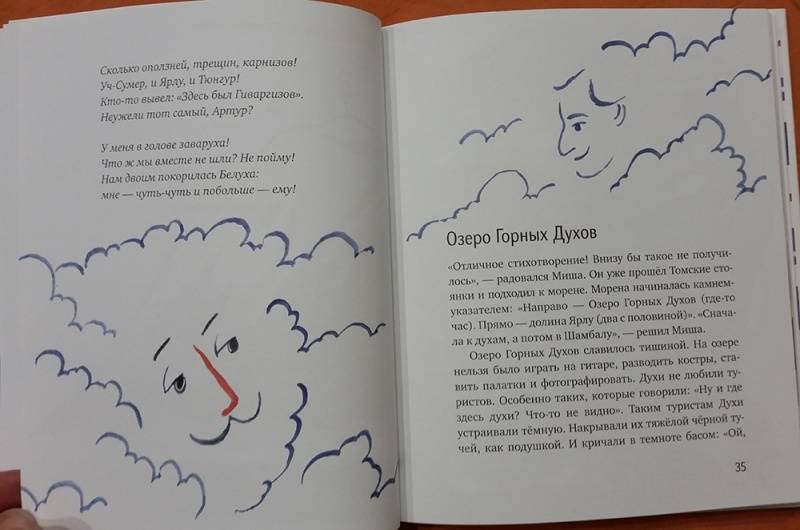 Сколько оползней, трещин, карнизов!
Уч-Сумер, и Ярлу, и Тюнгур!
Кто-то вывел: «Здесь был Гиваргизов».
Неужели тот самый, Артур?
У меня в голове заваруха!
Что ж мы вместе не шли? Не пойму!
Нам двоим покорилась Белуха:
мне — чуть-чуть и побольше — ему!
Озеро Горных Духов
«Отличное стихотворение! Внизу бы такое не получи-
лось», — радовался Миша. Он уже прошёл Томские сто-
янки и подходил к морене. Морена начиналась камнем-
указателем: «Направо — Озеро Горных Духов (где-то
час). Прямо — долина Ярлу (два с половиной)». «Снача-
ла к духам, а потом в Шамбалу», — решил Миша.
Озеро Горных Духов славилось тишиной. На озере
нельзя было играть на гитаре, разводить костры, ста-
вить палатки и фотографировать. Духи не любили ту-
ристов. Особенно таких, которые говорили: «Ну и где
здесь духи? Что-то не видно». Таким туристам Духи
устраивали тёмную. Накрывали их тяжёлой чёрной ту-
чей, как подушкой. И кричали в темноте басом: «Ой,
35